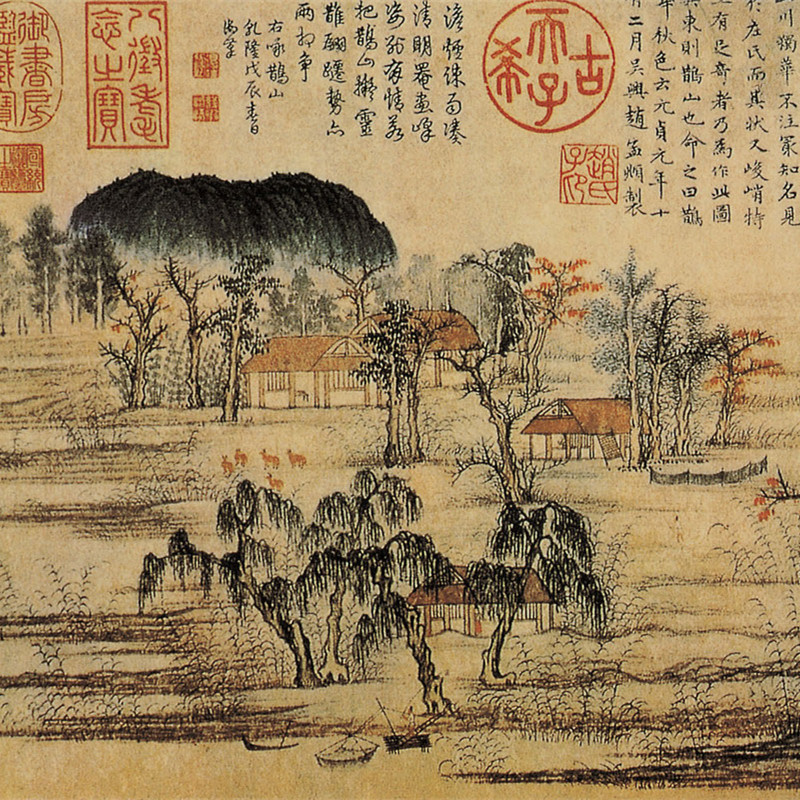 川獨華不注冣知名見
於左氏而其狀又峻峭特
立有足奇者乃為作此圖
其東則鵲山也命之曰鵲
華秋色云元貞元年十
有二月吳興趙孟頫製
趙氏子印
古希天子
澹煙疎雨湊
清明罨畫峰
姿別有情若
把鵲山擬靈
鵲翩躚勢亦
兩相爭
右詠鵲山
乾隆戊辰春日
御筆
八徵耄念之寶
御書房鑑藏寶